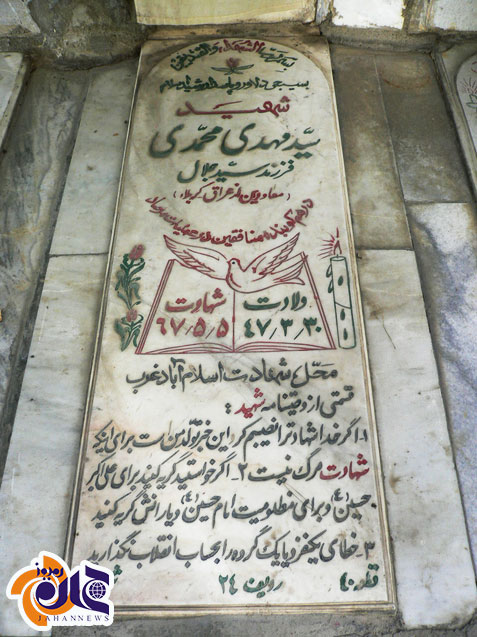 بسیجی دلاور و پاسدار رشید اسلام
شهید
سیّد مهدی محمّدی
فرزند سیّد جلال
(معاودین از عراق کربلاء)
منافقین
شهادت ولادت
۶۷/۵/۵ ۴۷/۳/۳۰
محل شهادت اسلام آباد غرب
قسمتی از وصیتنامه شهید:
۱- اگر خدا شهادت را نصیبم کرد این خبر تولد من است برای اینکه
شهادت مرگ نیست ۲- اگر خواستید گریه کنید برای علی اکبر
حسین (ع) و برای مظلومیت امام حسین (ع) و یارانش گریه کنید
۳- خطای یکفرد یا یک گروه را بحساب انقلاب نگذارید
قطعه ۴۰ ردیف ۲۴
جهان امروز
JAHANNEWS